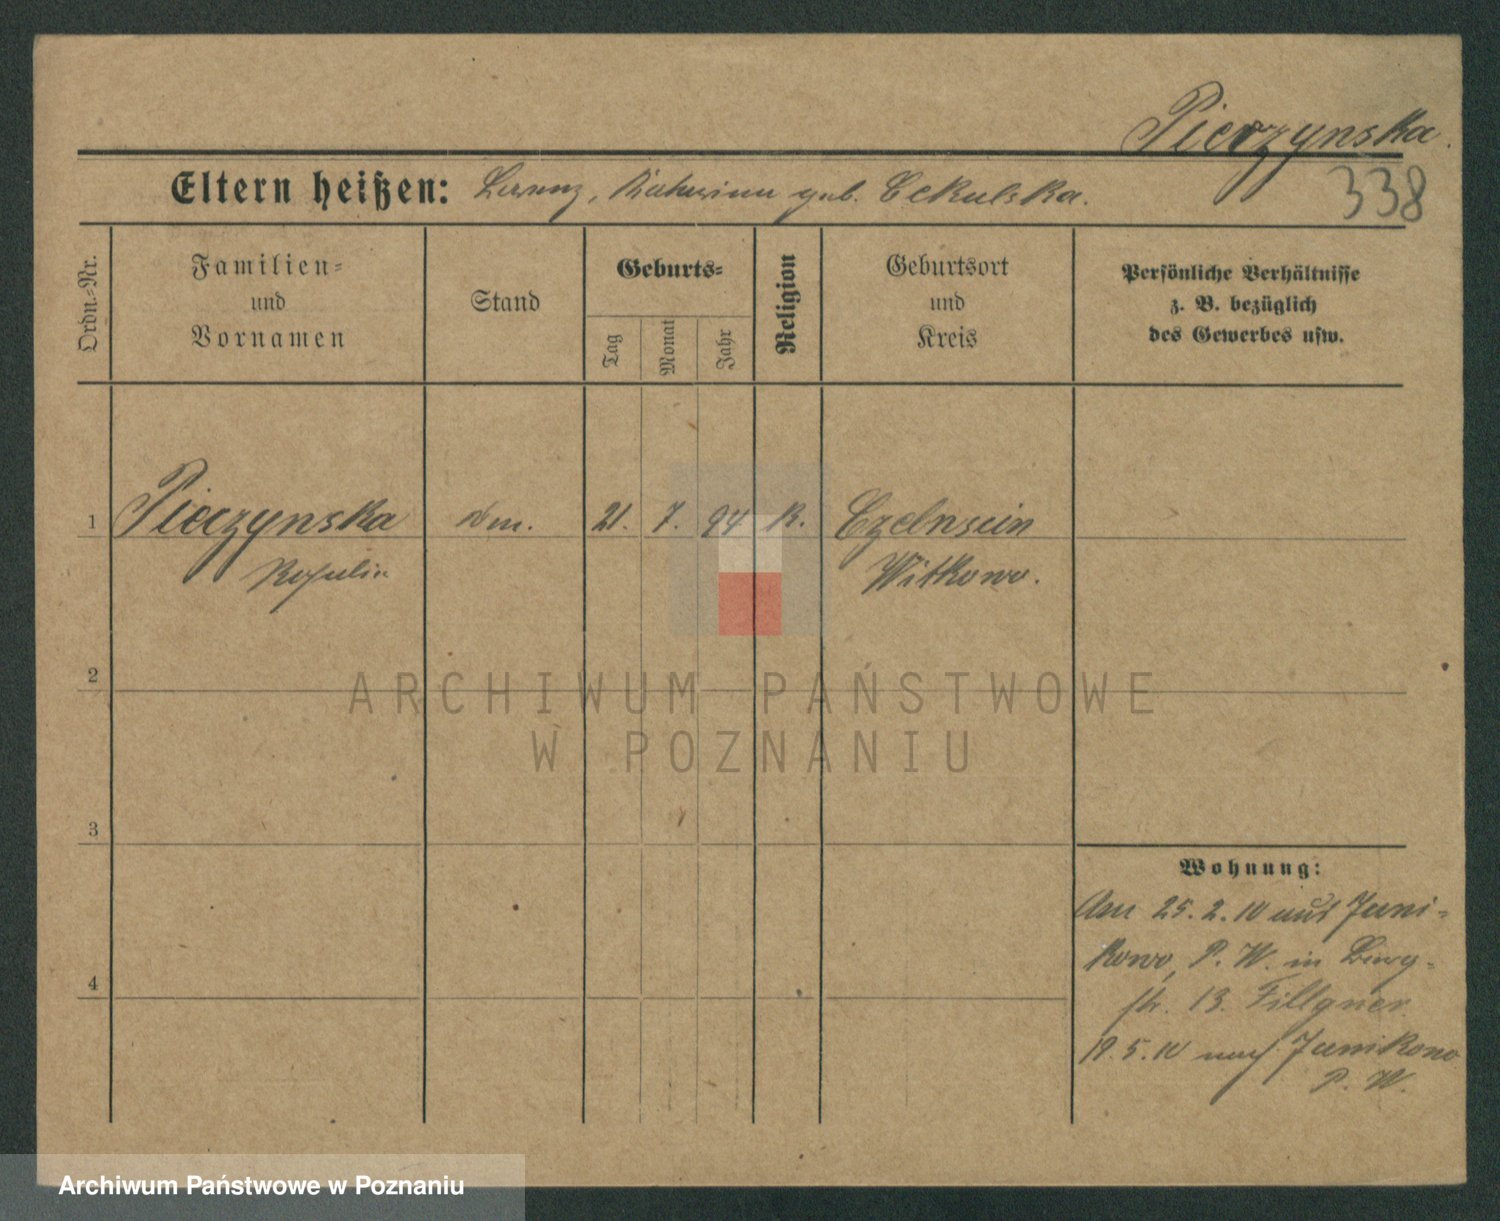 Pieczynska.
338
Eltern heißen: Lorenz, Katharina geb. Cekulska.
Ordn.-Nr.
Familien-
und
Vornamen
Stand
Geburts-
Tag
Monat
Jahr
Religion
Geburtsort
und
Kreis
Persönliche Verhältnisse
z. B. bezüglich
des Gewerbes usw.
1 Pieczynska 21. 7. 94 K.
Witkowo.
2
ARCHIWUM PAŃSTWOWE
W POZNANIU
3
4
Wohnung:
Am 25. 2. 10 aus Juni-
kowo, P. W. in Burg-
str. 13. Fillgner.
19. 5. 10 nach Junikowo
P. W.
Archiwum Państwowe w Poznaniu